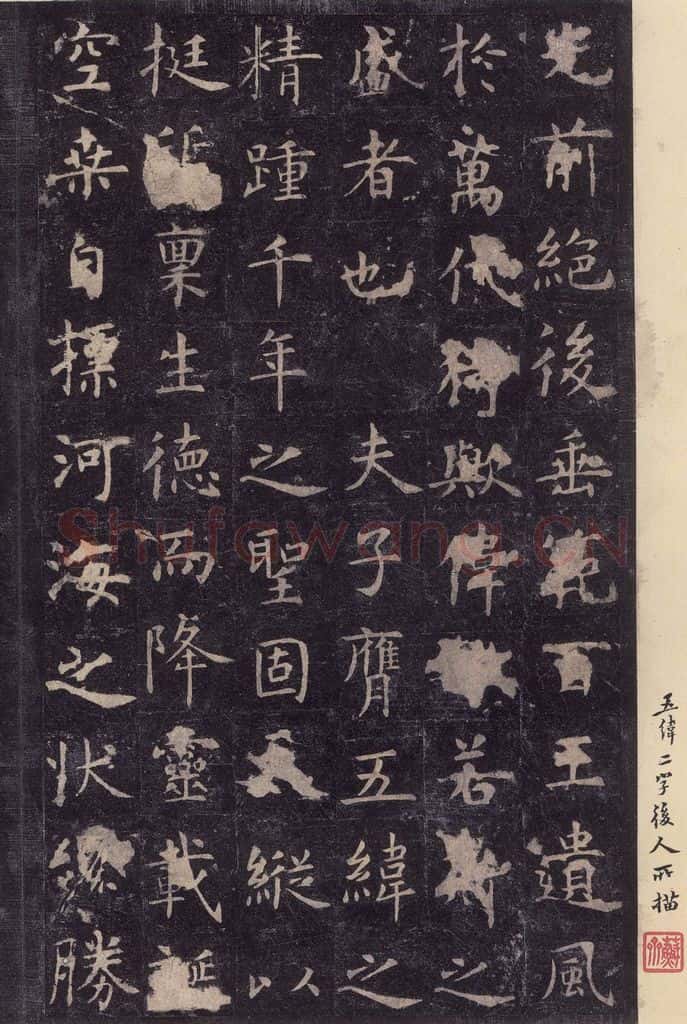 光前絕後垂範百王遺風
於萬代猗歟偉若斯之
盛者也 夫子膺五緯之
精踵千年之聖固天縱以
挺稟生德而降靈載誕
空桑自標河海之狀纔勝
五偉二字後人所描
Shufawang.CN